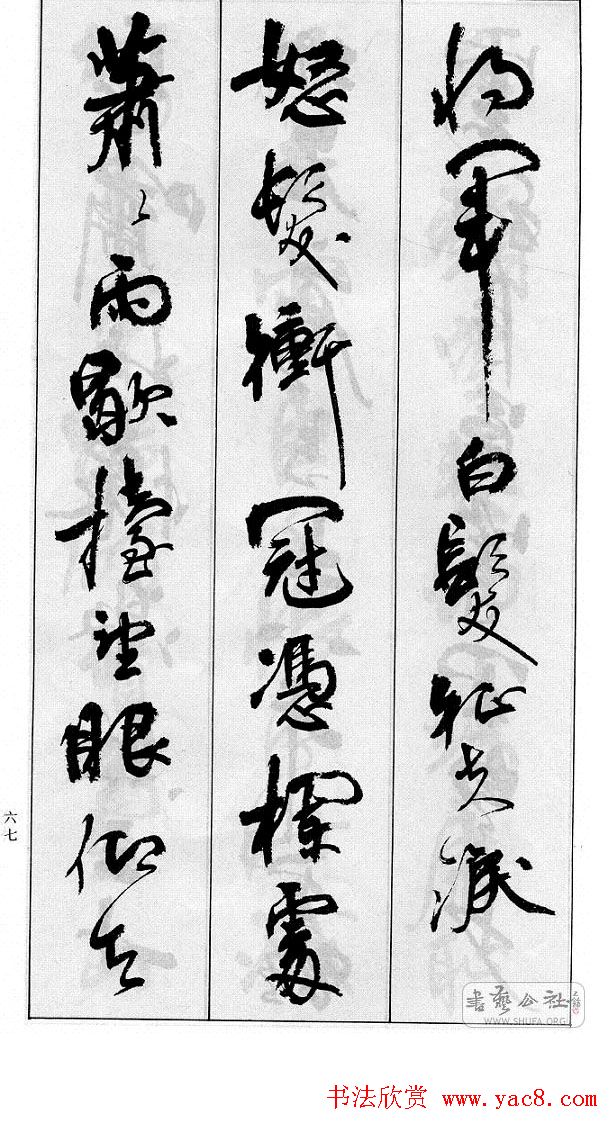 将軍白髮征夫淚
怒髮衝冠憑欄處
蕭〻雨歇擡望眼仰天
六七
書藝公社
WWW.SHUFA.ORG
书法欣赏 www.yac8.com